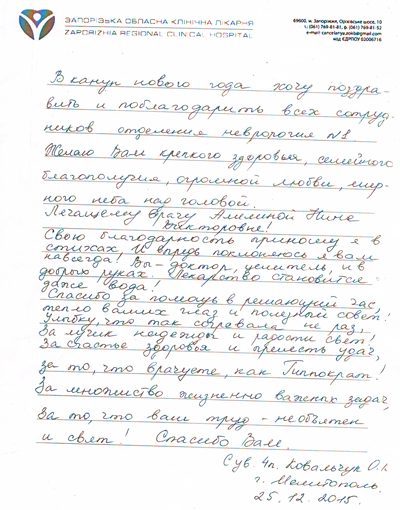 ЗАПОРІЗЬКА ОБЛАСНА КЛІНІЧНА ЛІКАРНЯ
ZAPORIZHIA REGIONAL CLINICAL HOSPITAL
69600, м. Запоріжжя, Оріхівське шосе, 10
т.: (061) 769-81-81, ф. (061) 769-81-52
e-mail: cancelarya.zokb@gmail.com
код ЄДРПОУ 02006716
В канун нового года хочу поздра-
вить и поблагодарить всех сотруд-
ников отделения неврология №1
Желаю Вам крепкого здоровья, семейного
благополучия, огромной любви, мир-
ного неба над головой.
Лечащему врачу Амелиной Нине
Викторовне!
Свою благодарность приношу я в
стихах. И впредь поклоняюсь я вам
навсегда! Вы - доктор, целитель, и в
добрых руках Лекарство становится
даже вода!
Спасибо за помощь в решающий час,
тепло ваших глаз и полезный совет!
Улыбку, что так согревала не раз,
За лучик надежды и радости свет!
За счастье здоровья и прелесть удач,
за то, что врачуете, как Гиппократ!
За множество жизненно важных задач,
За то, что ваш труд - необъятен
и свят! Спасибо Вам.
Сув. 4п. Ковальчук О.І.
г. Мелитополь.
25.12.2015.